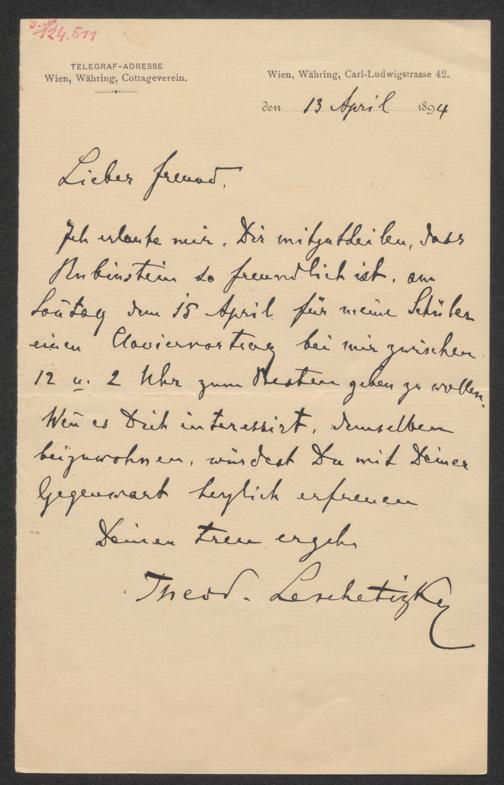 J.N. 124.511
TELEGRAF-ADRESSE
Wien, Währing, Cottageverein.
Wien, Währing, Carl-Ludwigstrasse 42.
den 13 April 1894
Lieber Freund,
Ich erlaube mir, Dir mitzutheilen, dass
Rubinstein so freundlich ist, am
Soñtag den 15 April für meine Schüler
einen Claviervortrag bei mir zwischen
12 u. 2 Uhr zum Besten geben zu wollen.
Weñ es Dich interessirt, demselben
beizuwohnen, würdest Du mit Deiner
Gegenwart herzlich erfreuen
Deinen treu ergebn
Theod. Leschetizky